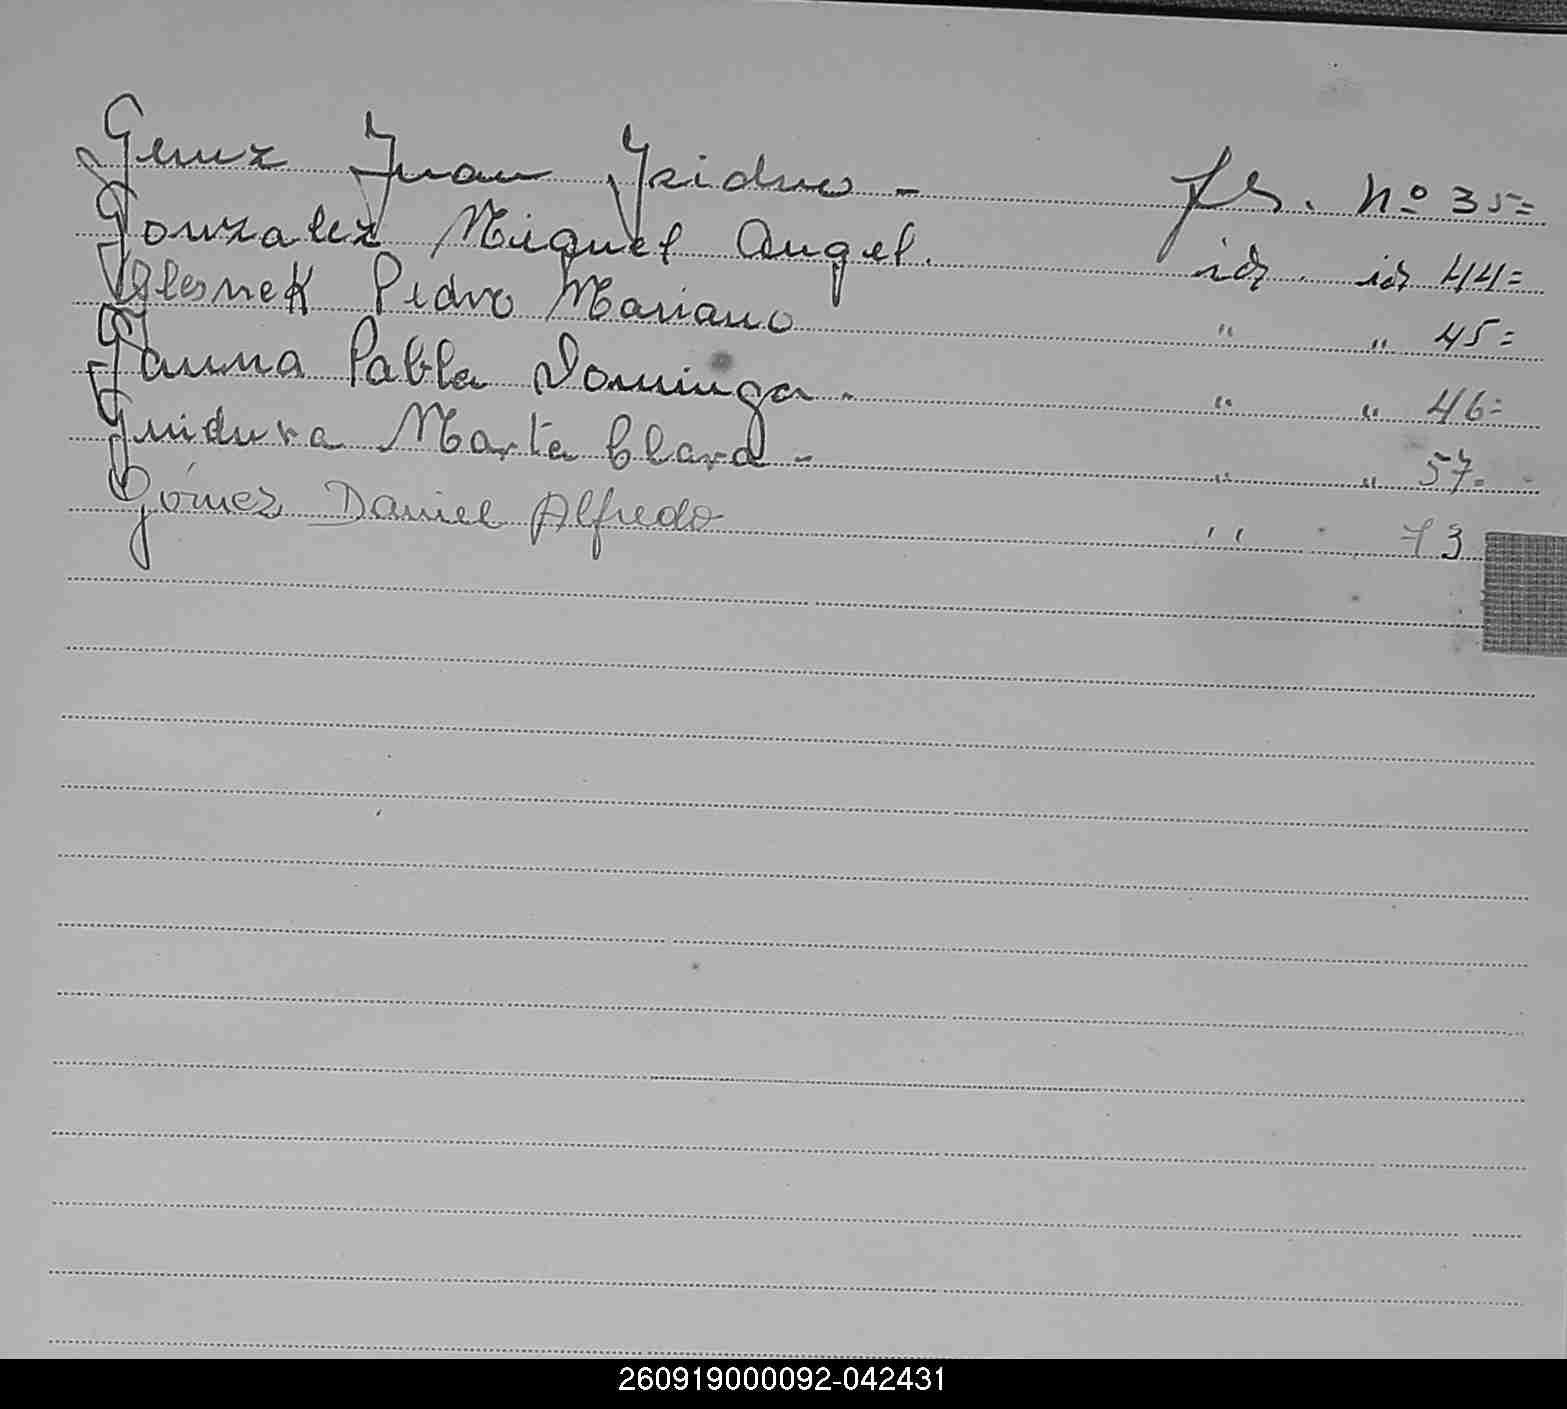 Genuz Juan Ysidro - fs. Nº 35=
Gonzalez Miguel Angel. id. id 44=
Glesnek Pedro Mariano " " 45=
Gauna Pabla Dominga - " " 46=
Guidura Marta Clara - " " 57=
Gómez Daniel Alfredo " 73
260919000092-042431